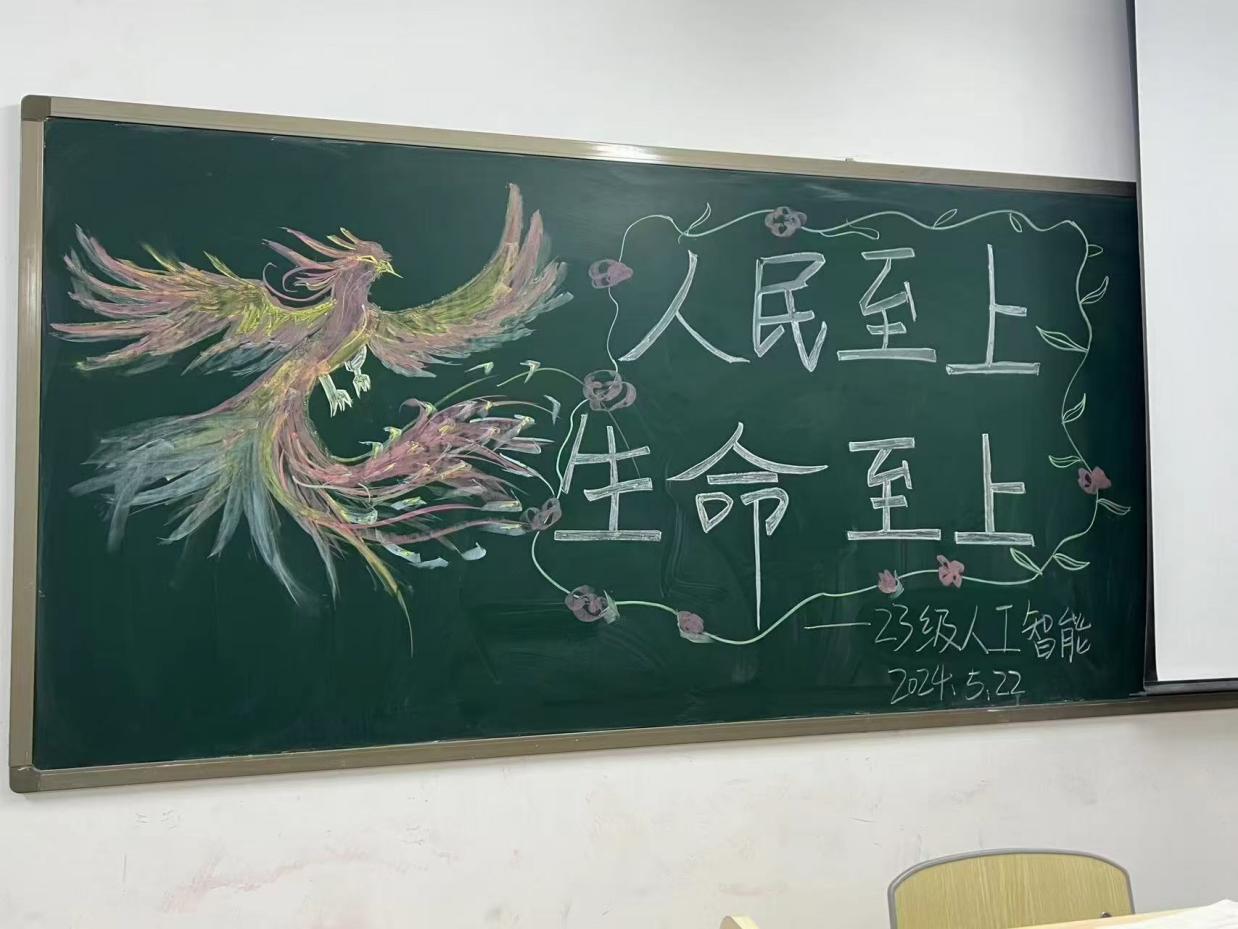 人民至上
生命至上
——23级人工智能
2024.5.22